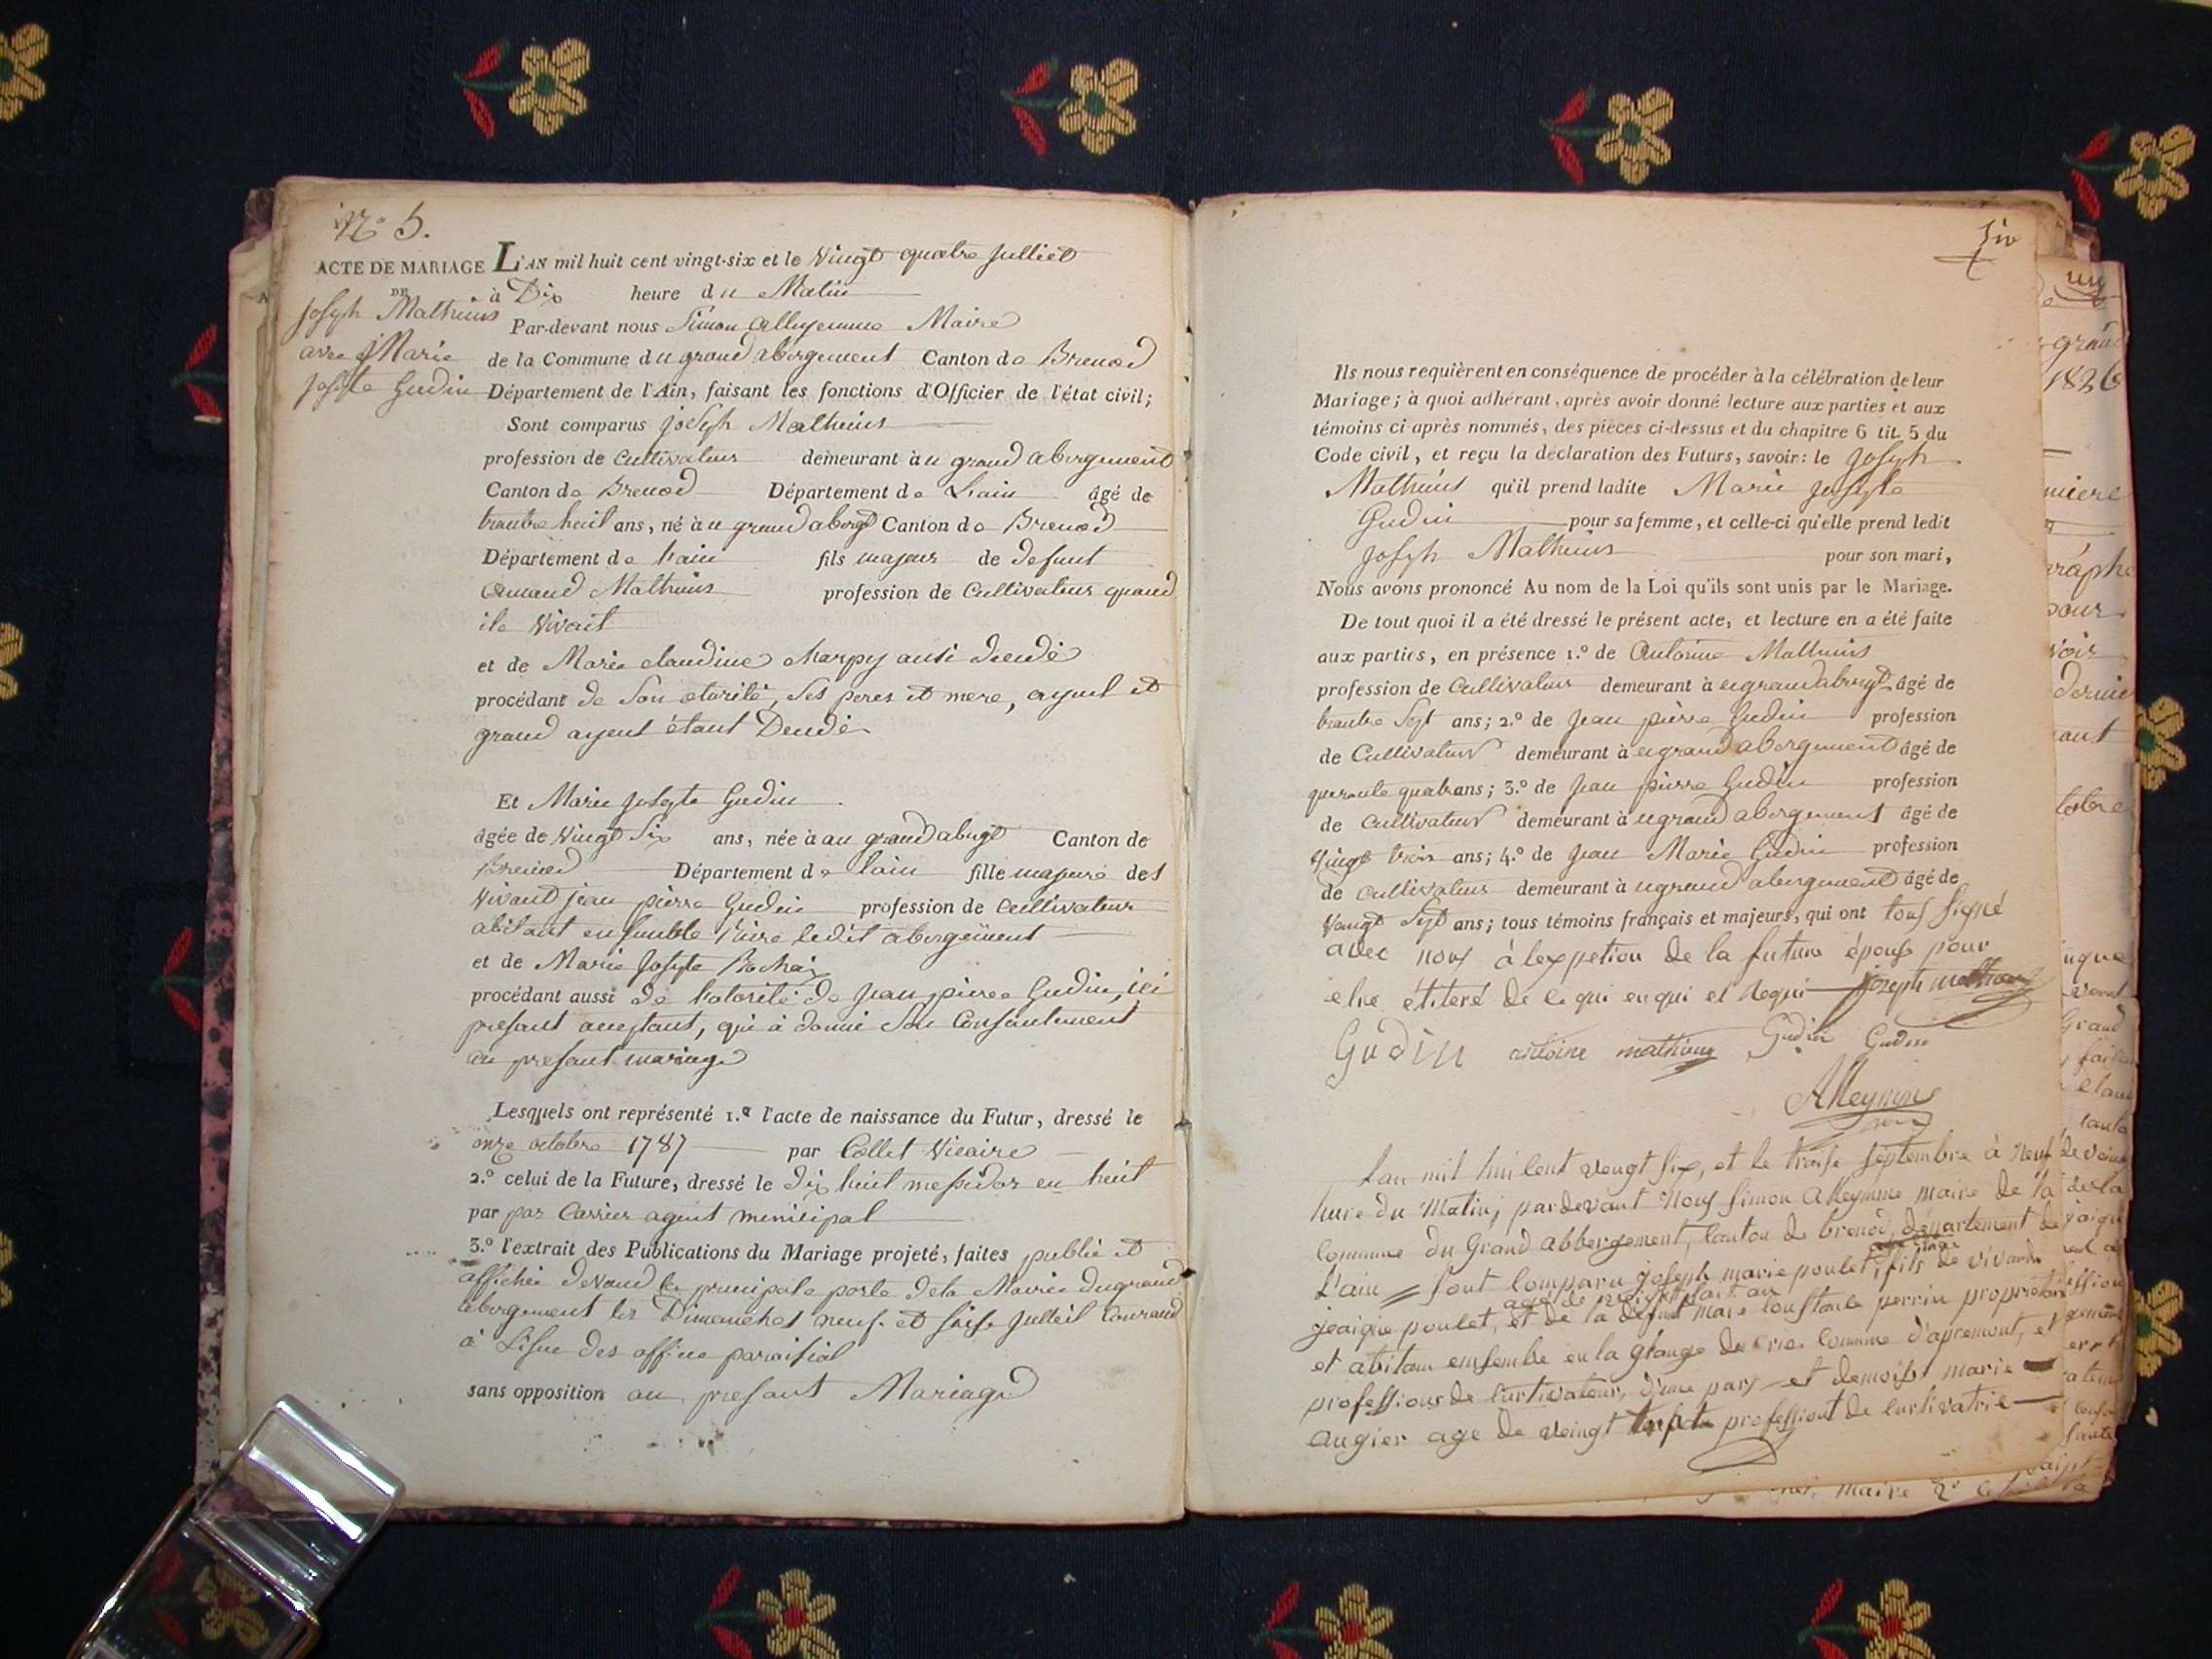 N.o 5.
ACTE DE MARIAGE
DE
Joseph Mathieus
avec Marie
Josepte Gudin
L'AN mil huit cent vingt-six et le vingt quatre Julliet
à Dix heure du Matin
Par-devant nous Simon Alleyemme Maire
de la Commune du grand abergement Canton de Brenod
Département de l'Ain, faisant les fonctions d'Officier de l'état civil;
Sont comparus joseph Mathieus
profession de Cultivateur demeurant à u grand abergement
Canton de Brenod Département de Lain âgé de
trantre huit ans, né à u grand aberg.t Canton de Brenod
Département de Lain fils majeur de defunt
Mathieus profession de Cultivateur quand
ile vivait
et de Marie claudine charpy ausi
procédant de son otorité, ses peres et mere, ayeul et
grand ayeul étant
Et Marie Josepte Gudin
âgée de vingt Six ans, née à au grand Canton de
Brenod Département de lain fille majeure des
vivant jean pierre Gudin profession de cultivateur
abitant ensemble ledit abergement
et de Marie Josepte
procédant aussi de l'otorité de Jean pierre Gudin, ici
presant aceptant, qui à donné son Consantement
au presant mariage
Lesquels ont représenté 1.º l'acte de naissance du Futur, dressé le
onze octobre 1787 par Collet Vicaire
2.º celui de la Future, dressé le dix huit mesidor en huit
par par Carrier agent municipal
3.º l'extrait des Publications du Mariage projeté, faites publié et
affiché devand la principale porte dela Mairie du grand
abergement les Dimanches neuf et saise Julleit Courand
à L'isue des office paroisial
sans opposition au presant Mariage
Six
Ils nous requièrent en conséquence de procéder à la célébration de leur
Mariage; à quoi adhérant, après avoir donné lecture aux parties et aux
témoins ci-après nommés, des pièces ci-dessus et du chapitre 6 tit. 5 du
Code civil, et reçu la déclaration des Futurs, savoir: le joseph
Mathieus qu'il prend ladite Marie josepte
Gudin pour sa femme, et celle-ci qu'elle prend ledit
Joseph Mathieus pour son mari,
Nous avons prononcé Au nom de la Loi qu'ils sont unis par le Mariage.
De tout quoi il a été dressé le présent acte, et lecture en a été faite
aux parties, en présence 1.º de Antoine Mathieus
profession de Cultivateur demeurant à âgé de
trantre Sept ans; 2.º de Jean pierre Gudin profession
de Cultivateur demeurant à u grand abergement âgé de
quatre ans; 3.º de Jean pierre Gudin profession
de Cultivateur demeurant à u grand abergement âgé de
Vingt trois ans; 4.º de Jean Marie Gudin profession
de cultivateur demeurant à u grand abergement âgé de
Vangt Sept ans; tous témoins français et majeurs, qui ont tous signé
avec nous à lexpetion de la future épouse pour
de ce qui enqui et Requi joseph mathieus
Gudin antoine mathieus Gudin Gudin
Alleymme
Lan mil hui cent vengt six, et le traise septembre à neuf
hure du Matin, pardevant Nous Simon Alleymme maire de la
Commune du Grand abbergement, Canton de brenod, département de
L'ain = Sont Comparu joseph marie poulet, fils de vivand
jeaique poulet, et de la defunt marie Constance perrin
et abitans ensembe en la grange du Commune d'apremont, et
professions de Curtivateur, d'une part et demoise marie
Augier age de veingt professiont de curtivatrie
1826